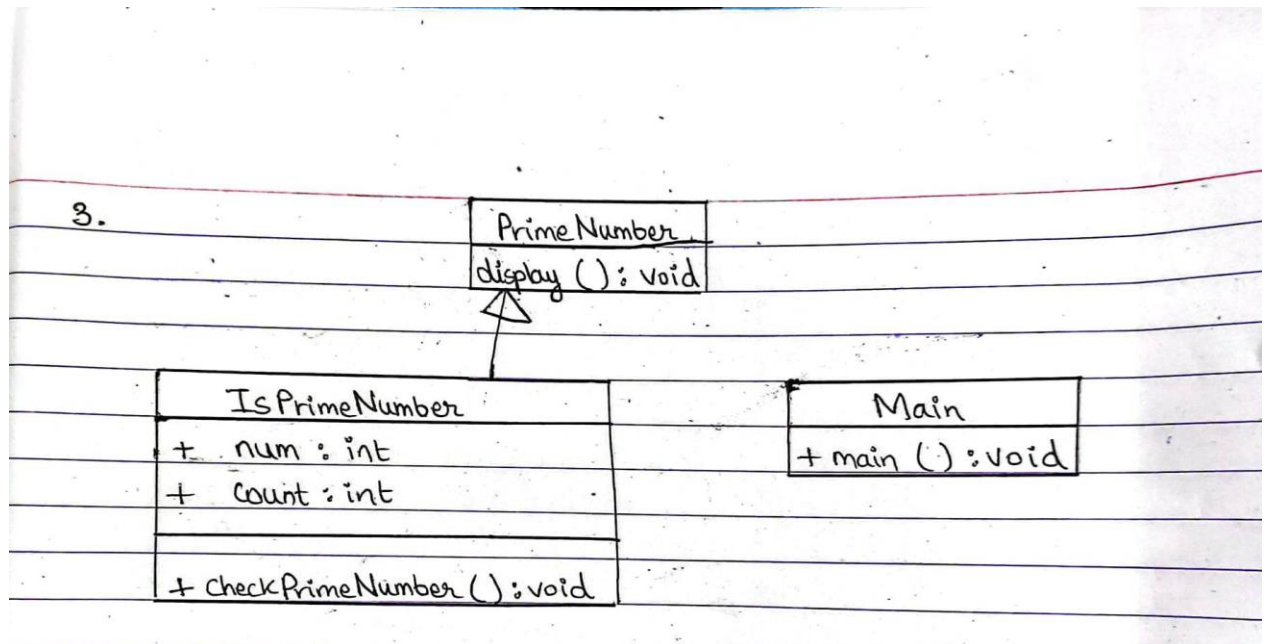 3.
PrimeNumber
display () : void
IsPrimeNumber
+ num : int
+ count : int
+ checkPrimeNumber () : void
Main
+ main () : void